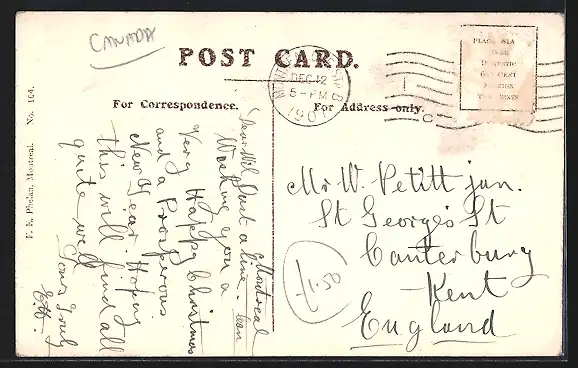 CANADA
POST CARD.
DEC 12
5 - PM
1907
PLACE STA
DOMESTIC
ONE CENT
FOREIGN
TWO CENTS
For Correspondence.
For Address only.
Montreal
Dear Wil Just a line
Wishing you a
Very Happy Christmas
and a Prosperous
New Year Hoping
this will find all
quite well
Yours Truly
Mr W. Petitt jun.
St George's St
Canterbury
Kent
England
1.50
F. E. Phelan, Montreal. No. 164.